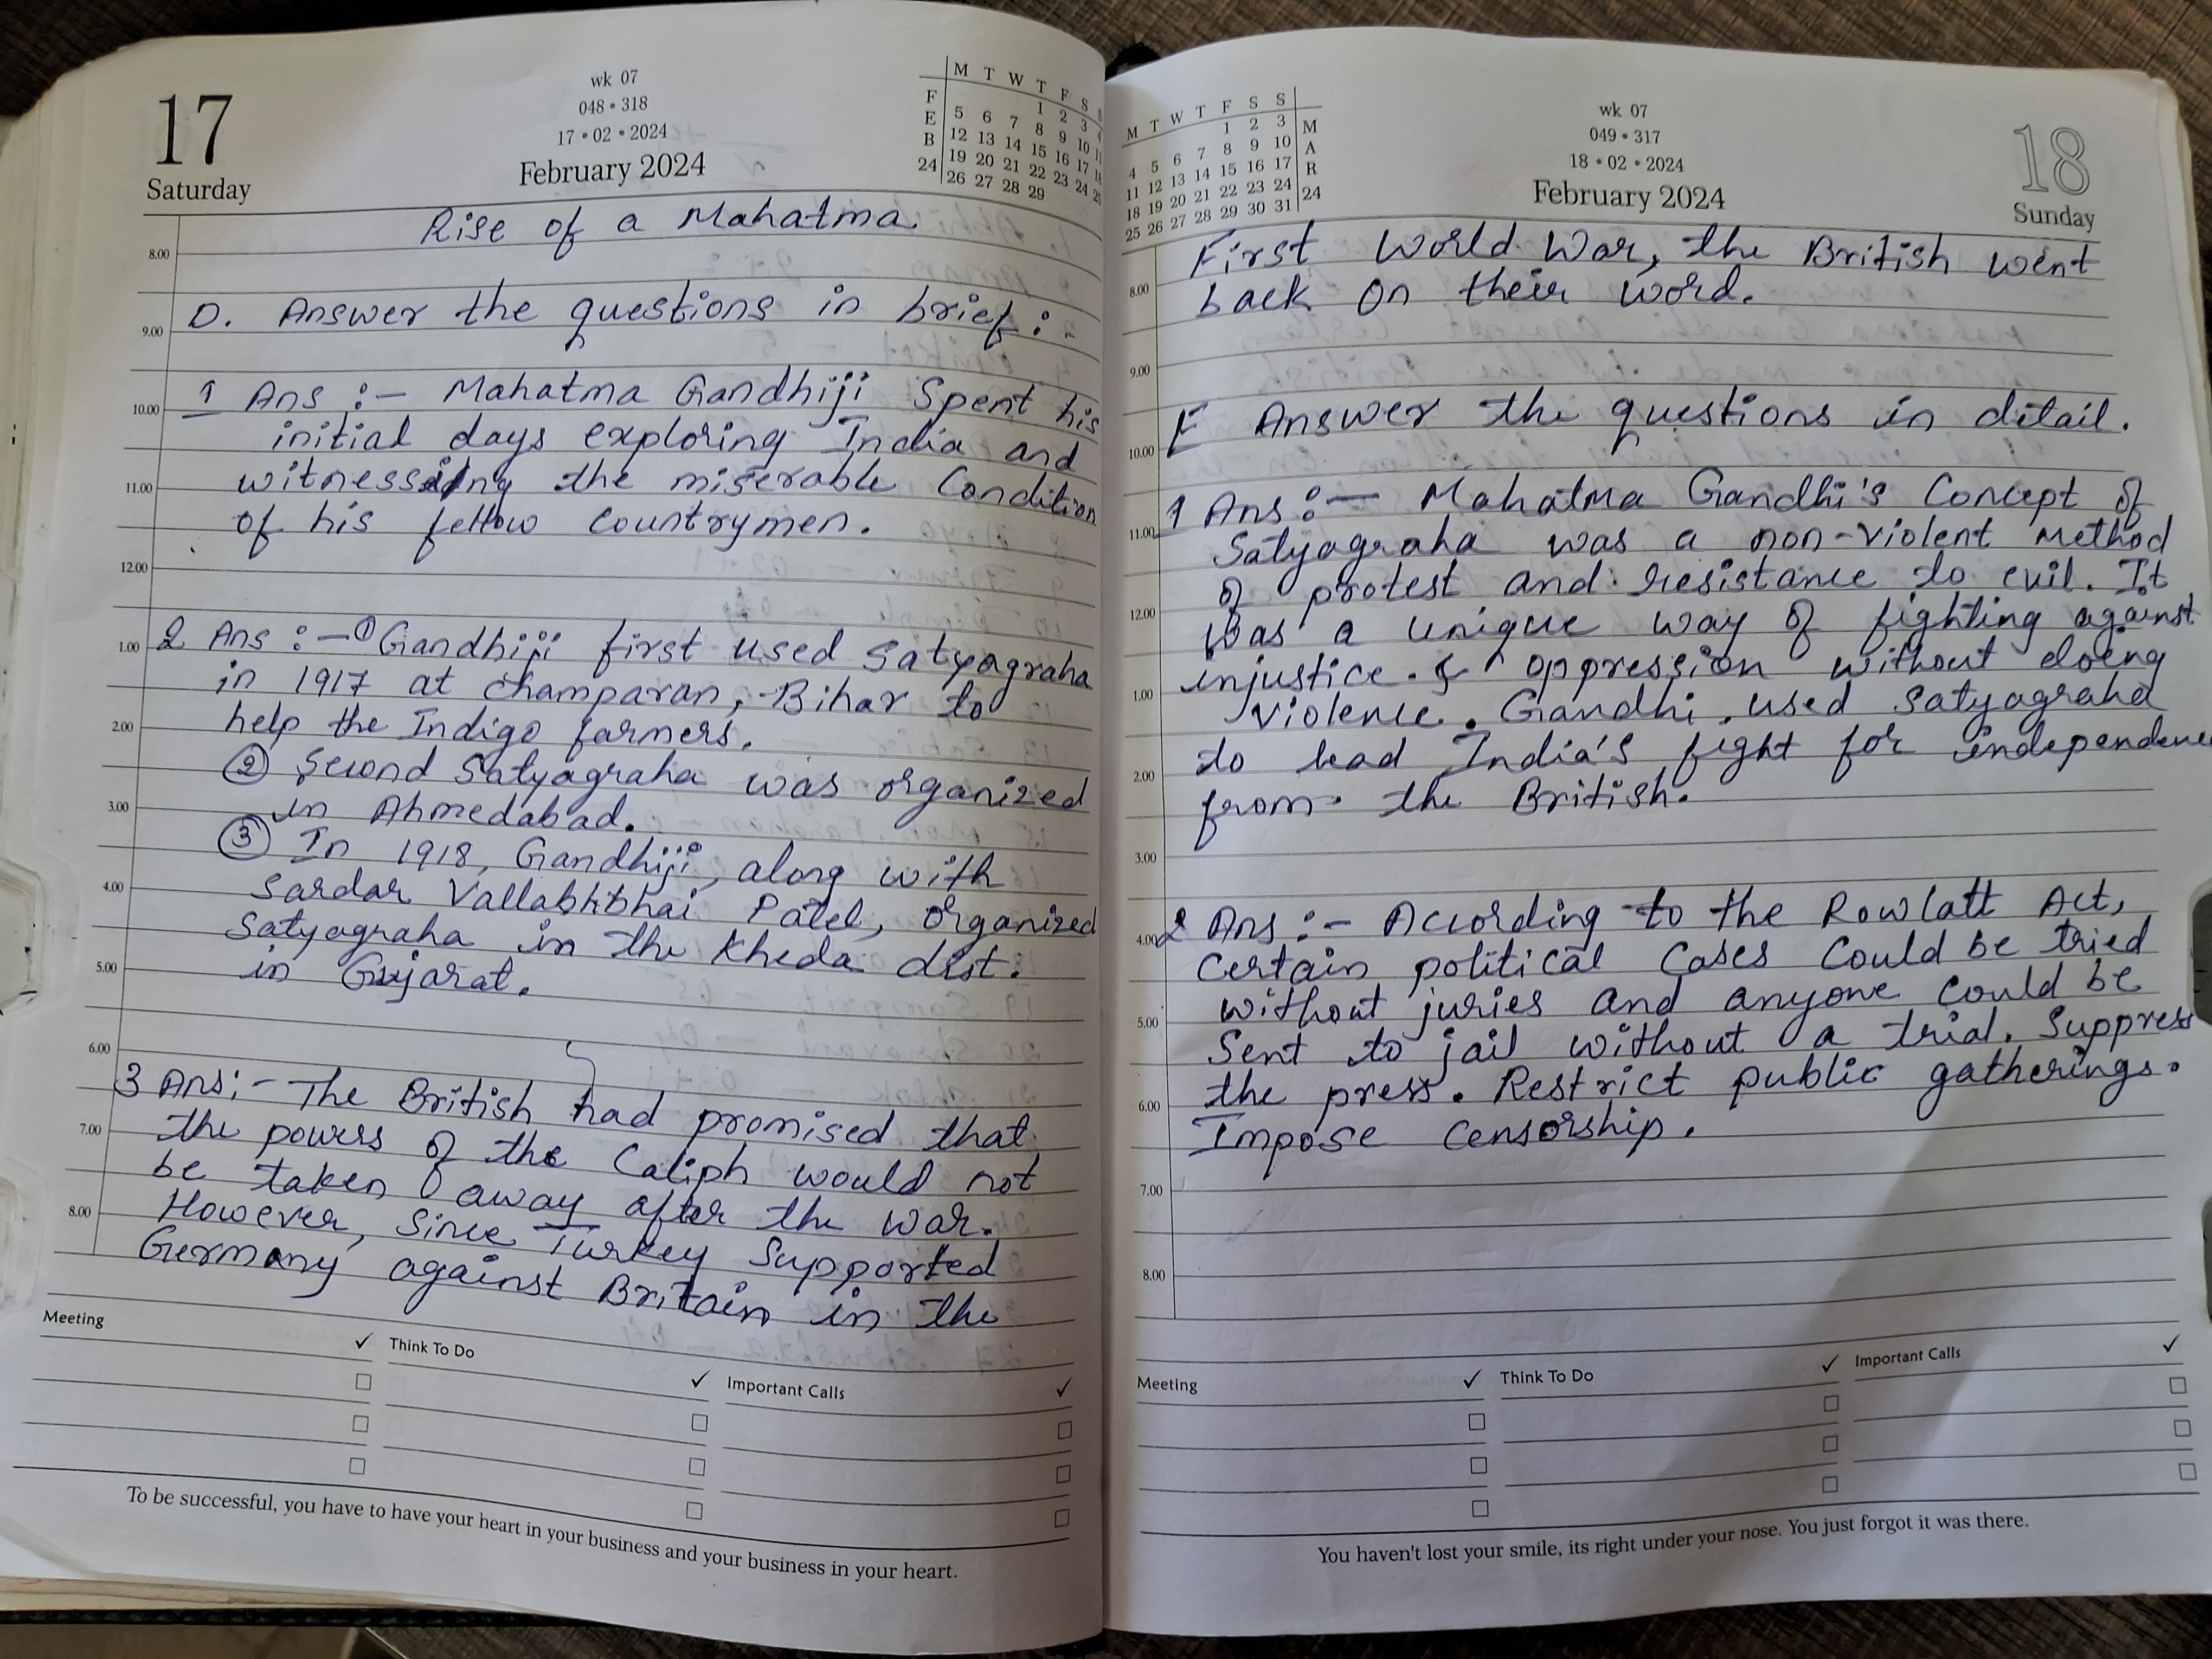 17
Saturday
wk 07
048 • 318
17 • 02 • 2024
February 2024
M T W T F S S
F E B 24
1 2 3 4
5 6 7 8 9 10 11
12 13 14 15 16 17 18
19 20 21 22 23 24 25
26 27 28 29
Rise of a Mahatma
8.00
D. Answer the questions in brief :-
9.00
1 Ans :- Mahatma Gandhiji Spent his
10.00
initial days exploring India and
witnessing the miserable Condition
11.00
of his fellow countrymen.
12.00
2 Ans :- ① Gandhiji first used Satyagraha
1.00
in 1917 at champaran, Bihar to
help the Indigo farmers.
2.00
② Second Satyagraha was organized
in Ahmedabad.
3.00
③ In 1918, Gandhiji, along with
Sardar Vallabhbhai Patel, organized
4.00
Satyagraha in the Kheda dist.
in Gujarat.
5.00
6.00
3 Ans:- The British had promised that
the powers of the Caliph would not
7.00
be taken away after the war.
However, Since Turkey Supported
8.00
Germany against Britain in the
Meeting ✓ Think To Do ✓ Important Calls ✓
To be successful, you have to have your heart in your business and your business in your heart.
M T W T F S S
M A R 24
1 2 3
4 5 6 7 8 9 10
11 12 13 14 15 16 17
18 19 20 21 22 23 24
25 26 27 28 29 30 31
wk 07
049 • 317
18 • 02 • 2024
February 2024
18
Sunday
First World War, the British went
8.00
back on their word.
9.00
E Answer the questions in detail.
10.00
1 Ans :- Mahatma Gandhi's Concept of
11.00
Satyagraha was a non-violent Method
of protest and resistance to evil. It
12.00
was a unique way of fighting against
injustice & oppression without doing
1.00
violence. Gandhi used Satyagraha
to lead India's fight for independence
2.00
from the British.
3.00
2 Ans :- According to the Rowlatt Act,
4.00
Certain political Cases Could be tried
without juries and anyone could be
5.00
Sent to jail without a trial. Suppress
the press. Restrict public gatherings.
6.00
Impose Censorship.
7.00
8.00
Meeting ✓ Think To Do ✓ Important Calls ✓
You haven't lost your smile, its right under your nose. You just forgot it was there.